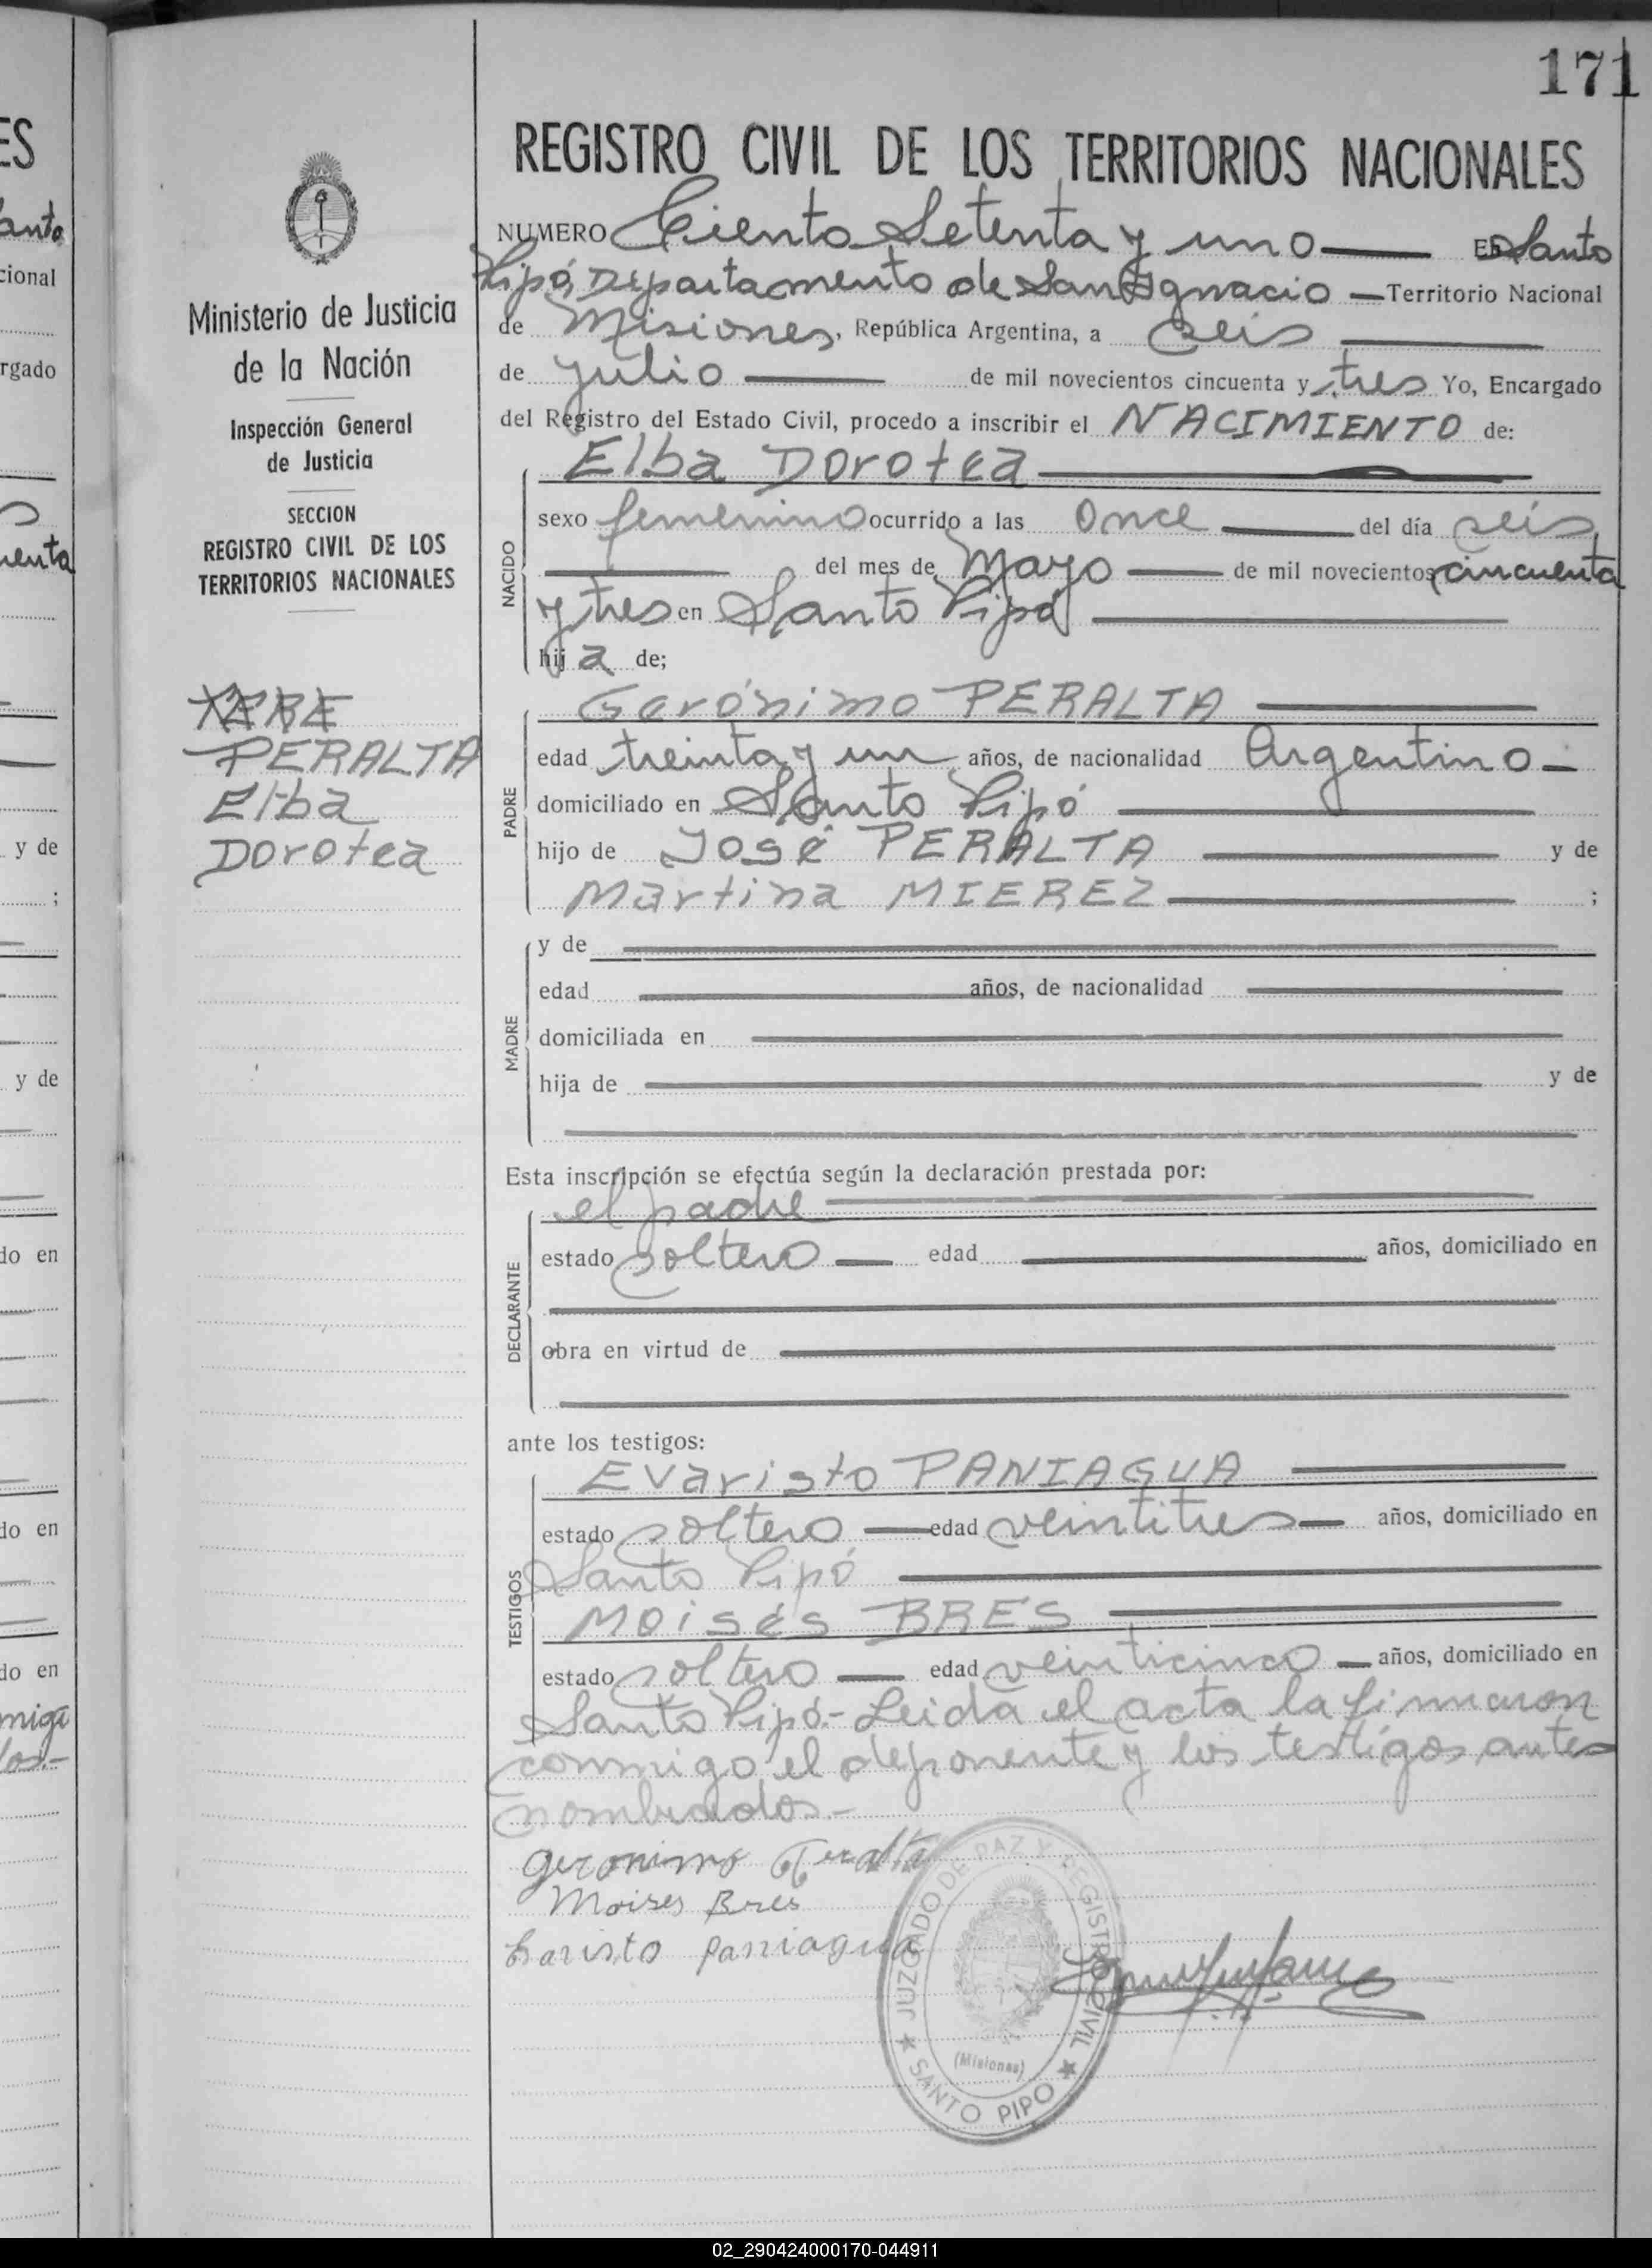 171
REGISTRO CIVIL DE LOS TERRITORIOS NACIONALES
NUMERO Ciento Setenta y uno — En Santo
Pipó, Departamento de San Ignacio — Territorio Nacional
de Misiones, República Argentina, a seis
de julio — de mil novecientos cincuenta y tres Yo, Encargado
del Registro del Estado Civil, procedo a inscribir el NACIMIENTO de:
Elba Dorotea
NACIDO
sexo femenino ocurrido a las once — del día seis
— del mes de Mayo — de mil novecientos cincuenta
y tres en Santo Pipó
hij a de;
Gerónimo PERALTA
PADRE
edad treinta y un años, de nacionalidad Argentino —
domiciliado en Santo Pipó
hijo de José PERALTA — y de
Martina MIEREZ — ;
MADRE
y de
edad — años, de nacionalidad
domiciliada en
hija de — y de
Esta inscripción se efectúa según la declaración prestada por:
el padre
DECLARANTE
estado soltero — edad — años, domiciliado en
obra en virtud de
ante los testigos:
Evaristo PANIAGUA
TESTIGOS
estado soltero — edad veintitres — años, domiciliado en
Santo Pipó
Moisés BRES
estado soltero — edad veinticinco — años, domiciliado en
Santo Pipó.- Leida el acta la firmaron
conmigo el deponente y los testigos antes
nombrados.-
geronimo Peralta
Moises Bres
Earisto paniagua
JUZGADO DE PAZ Y REGISTRO CIVIL
(Misiones)
★ SANTO PIPO ★
Ministerio de Justicia
de la Nación
Inspección General
de Justicia
SECCION
REGISTRO CIVIL DE LOS
TERRITORIOS NACIONALES
PERALTA
Elba
Dorotea
ES
anto
cional
rgado
uenta
y de
;
y de
do en
do en
do en
migo
los.-
02_290424000170-044911